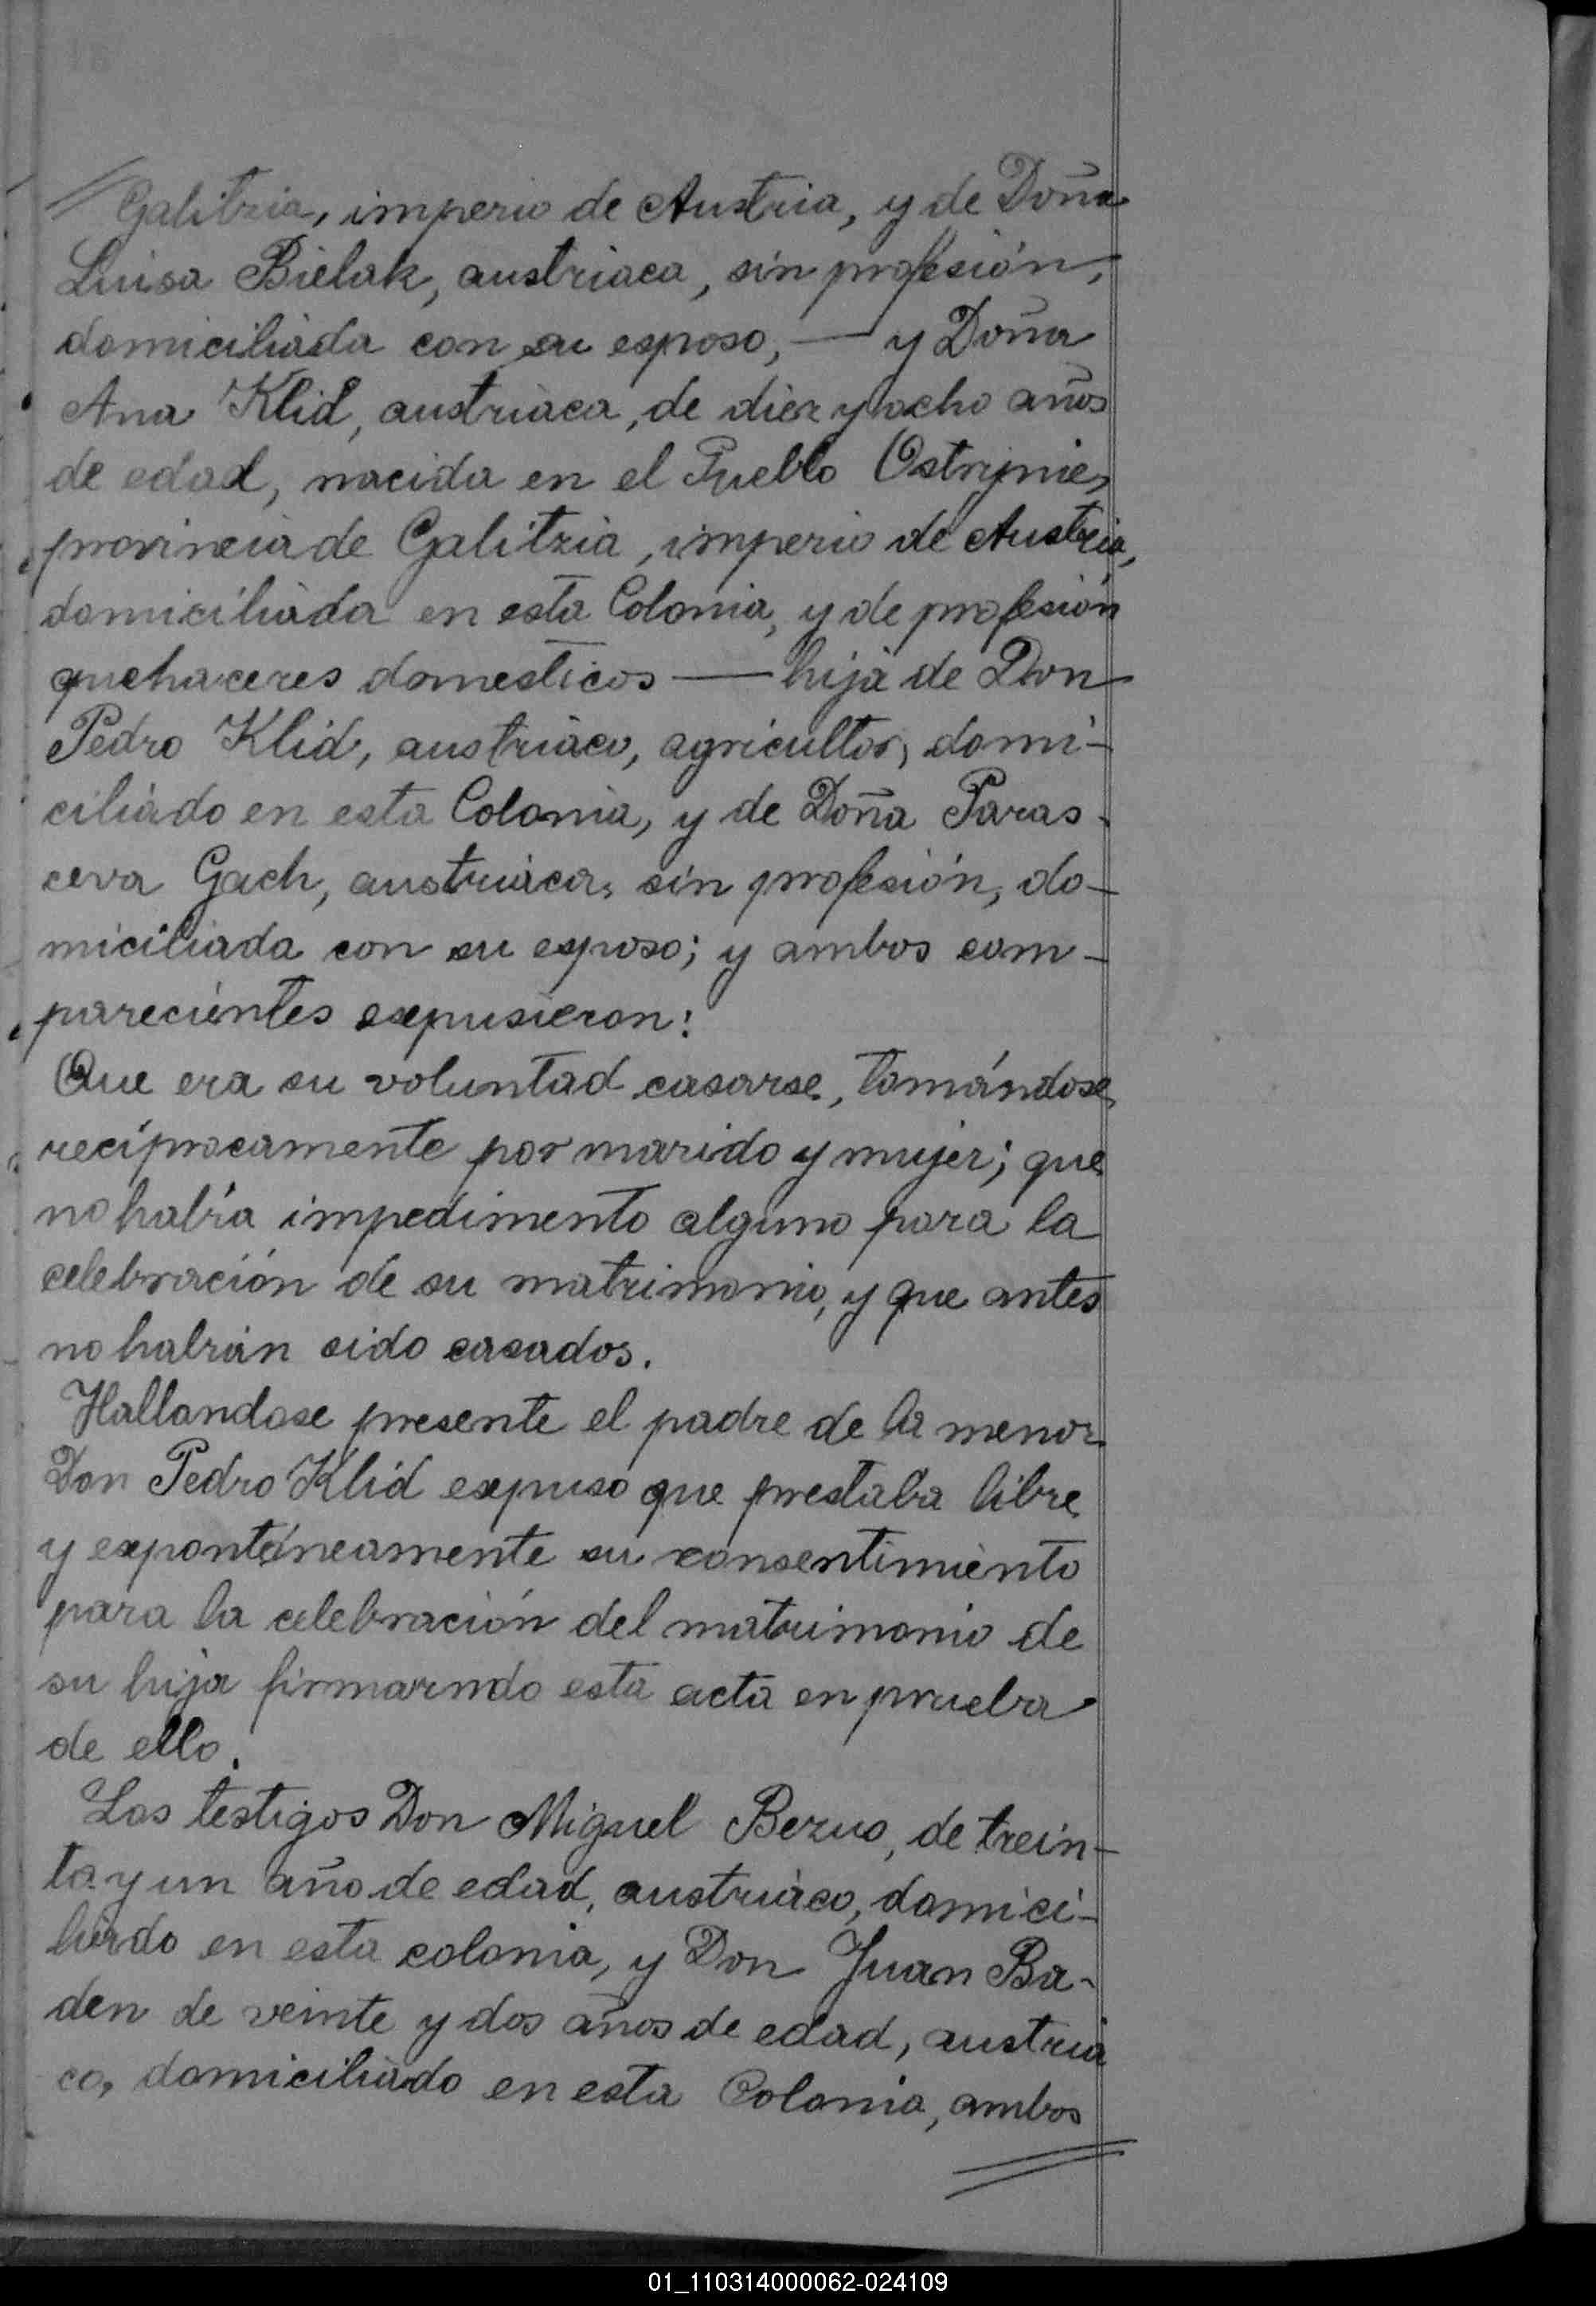 Galitzia, imperio de Austria, y de Doña
Luisa Bielak, austriaca, sin profesión,
domiciliada con su esposo, — y Doña
Ana Klid, austriaca, de diez y ocho años
de edad, nacida en el Pueblo Ostrynie,
provincia de Galitzia, imperio de Austria,
domiciliada en esta Colonia, y de profesión
quehaceres domesticos — hija de Don
Pedro Klid, austriaco, agricultor, domi-
ciliado en esta Colonia, y de Doña Paras-
ceva Gach, austriaca, sin profesión, do-
miciliada con su esposo; y ambos com-
parecientes expusieron:
Que era su voluntad casarse, tomándose
recíprocamente por marido y mujer; que
no había impedimento alguno para la
celebración de su matrimonio, y que antes
no habían sido casados.
Hallandose presente el padre de la menor
Don Pedro Klid expuso que prestaba libre
y expontáneamente su consentimiento
para la celebración del matrimonio de
su hija firmarndo esta acta en prueba
de ello.
Los testigos Don Miguel Bezus, de trein-
ta y un año de edad, austriaco, domici-
liado en esta colonia, y Don Juan Ba-
den de veinte y dos años de edad, austria
co, domiciliado en esta Colonia, ambos
01_110314000062-024109